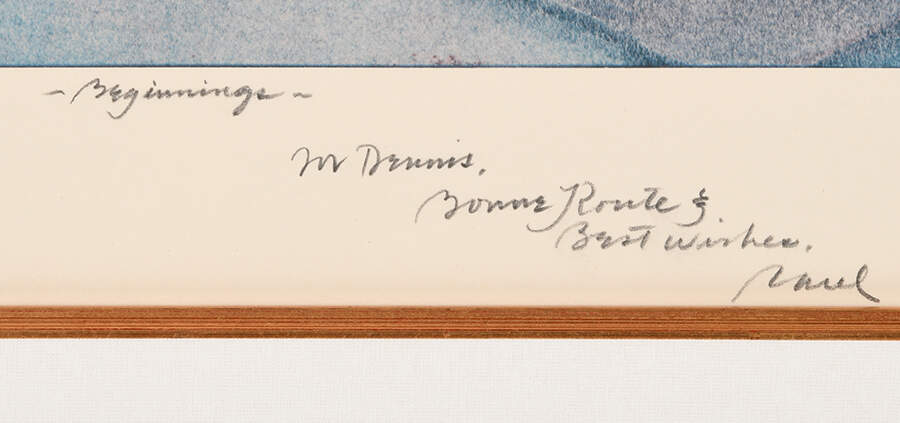 - Beginnings -
for Dennis.
Bonne Route &
Best Wishes.